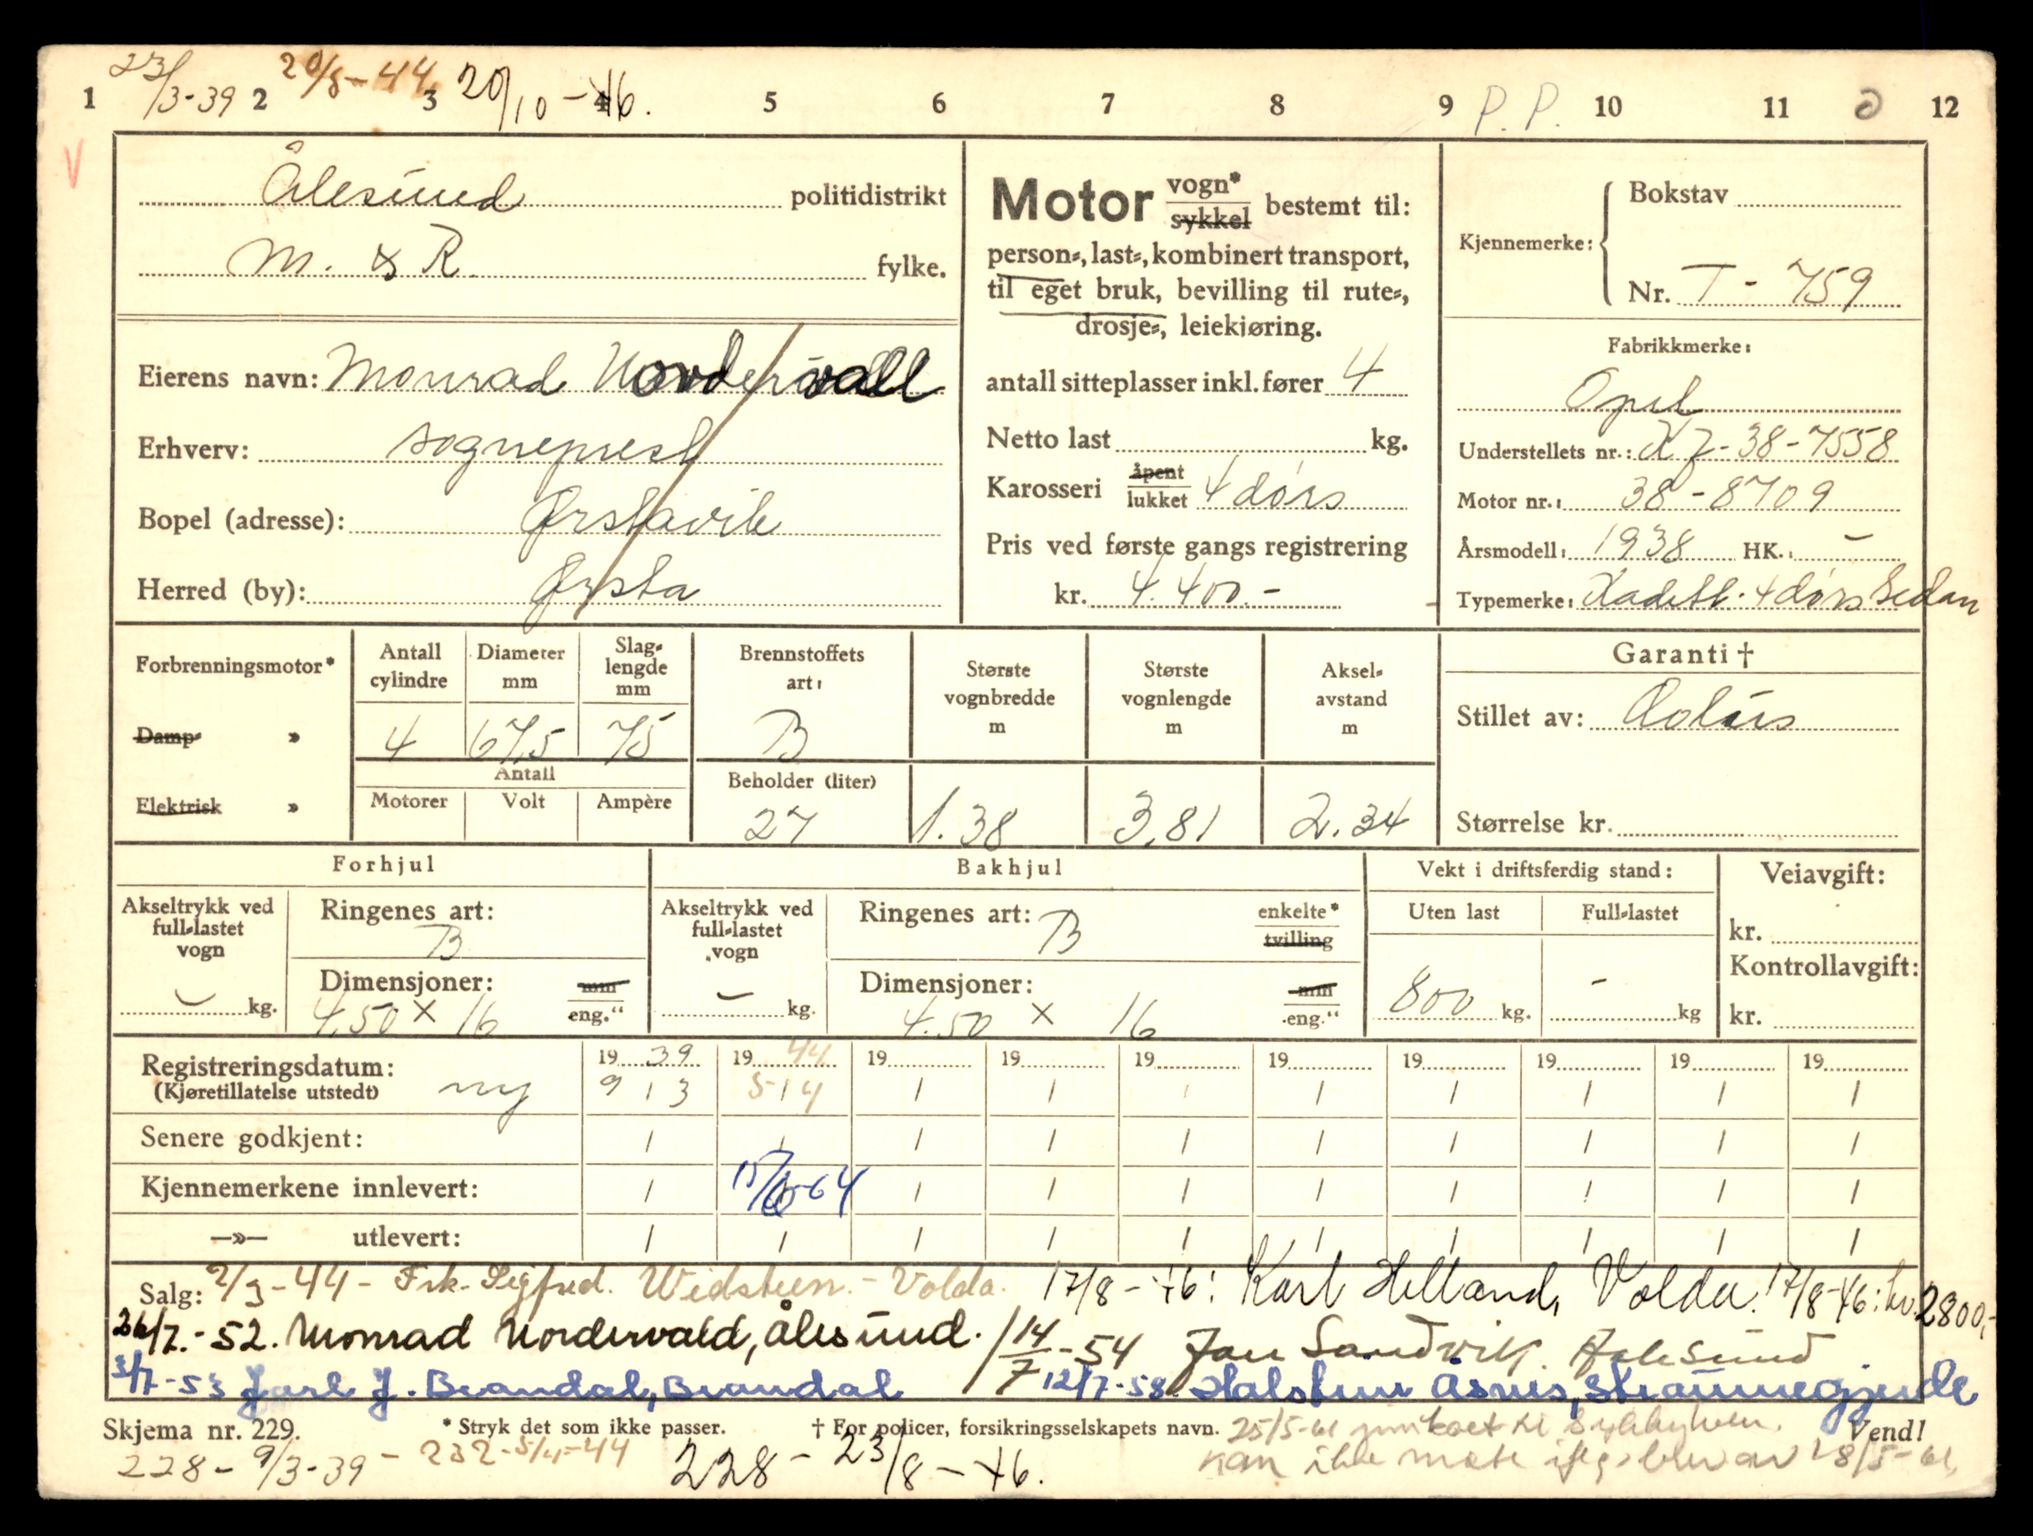 1 23/3-39 2 20/5-44 3 20/10-46. 4 5 6 7 8 9 P. P. 10 11 12
V
Ålesund politidistrikt
M. & R. fylke.
Eierens navn: Monrad Nordervall
Erhverv: sogneprest
Bopel (adresse): Ørstavik
Herred (by): Ørsta
Motor vogn* sykkel bestemt til:
person-, last-, kombinert transport,
til eget bruk, bevilling til rute-,
drosje-, leiekjøring.
antall sitteplasser inkl. fører 4
Netto last kg.
Karosseri åpent lukket 4 dørs
Pris ved første gangs registrering
kr. 4.400.-
Kjennemerke: Bokstav
Nr. T - 759
Fabrikkmerke:
Opel
Understellets nr.: KJ-38-7558
Motor nr.: 38-8709
Årsmodell: 1938 HK.: -
Typemerke: Kadett. 4 dørs Sedan
Forbrenningsmotor*
Damp- »
Elektrisk »
Antall cylindre 4
Diameter mm 67,5
Slaglengde mm 75
Antall
Motorer Volt Ampère
Brennstoffets art: B
Beholder (liter) 27
Største vognbredde m 1.38
Største vognlengde m 3,81
Akselavstand m 2.34
Garanti †
Stillet av: Æolus
Størrelse kr.
Forhjul
Akseltrykk ved full-lastet vogn - kg.
Ringenes art: B
Dimensjoner: mm eng."
4,50 x 16
Bakhjul
Akseltrykk ved full-lastet vogn - kg.
Ringenes art: B enkelte* tvilling
Dimensjoner: mm eng."
4.50 x 16
Vekt i driftsferdig stand:
Uten last Full-lastet
800 kg. - kg
Veiavgift:
kr.
Kontrollavgift:
kr.
Registreringsdatum: 19 39 19 44 19 19 19 19 19 19 19 19
(Kjøretillatelse utstedt) ny 9 / 3 5 / 4 / / / / / / / /
Senere godkjent: / / / / / / / / / /
Kjennemerkene innlevert: / 15/6-64 / / / / / / / /
—»— utlevert: / / / / / / / / / /
Salg: 2/3-44 - Frk. Sigfrid. Widsteen. - Volda. 17/8-46: Karl Helland, Volda. 17/8-46: kr. 2800,-
26/7.-52. Monrad Nordervald, Ålesund. 14/7-54 Jan Sandvik. Aalesund
3/7-53 Jarl J. Brandal, Brandal 12/7-58 Halstein Åsnes, Straumegjerde
Skjema nr. 229. * Stryk det som ikke passer. † For policer, forsikringsselskapets navn. Vend!
25/5-61 til Sykkylven.
228 - 9/3-39 - 232 - 5/4-44 228 - 23/8-46.
kan ikke møte av 28/5-61